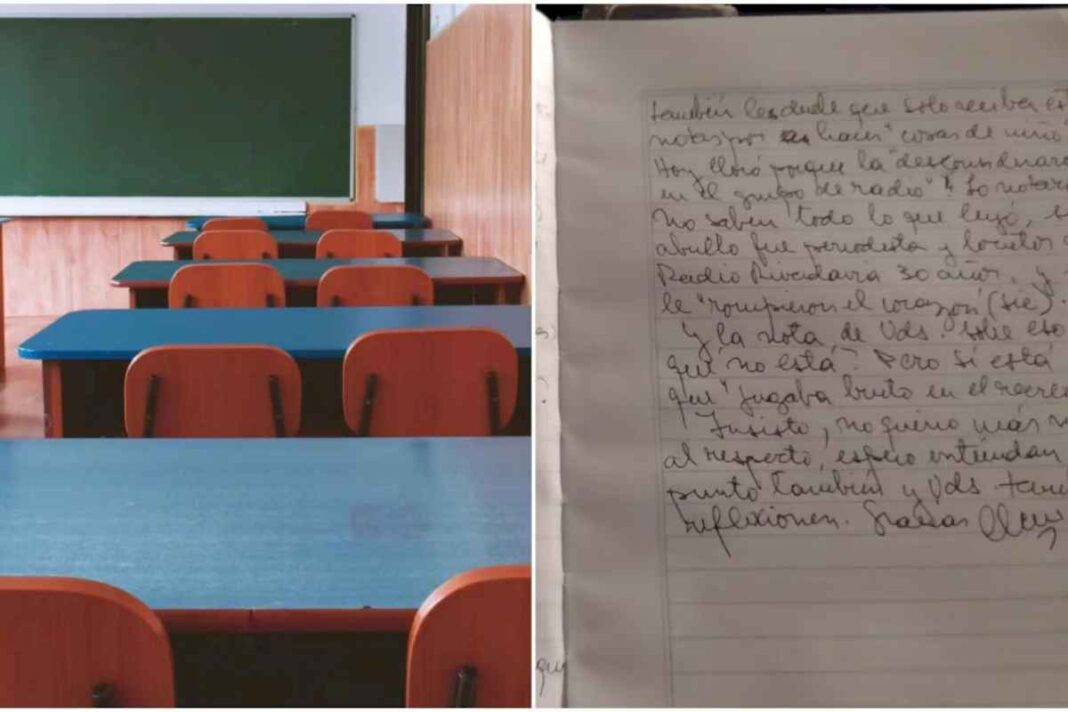 también les duele que solo reciban es
notas por hacer "cosas de niño
Hoy lloró porque la "descoordinaron
en el grupo de radio"! Lo notaro
No saben todo lo que leyó, s
abuelo fue periodista y locutor d
Radio Rivadavia 30 años, y
le "rompieron el corazón" (sic).
Y la nota de Uds. sobre eso
qué no está? Pero sí está
que "jugaba bruto en el recre
Insisto, no quiero más n
al respecto, espero entiendan
punto también y Uds. tam
reflexionen. Gracias